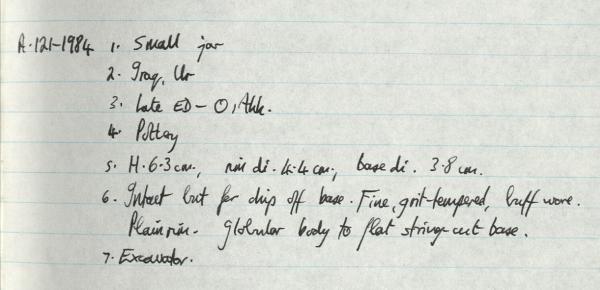 A.121-1984 1. Small jar
2. Iraq, Ur
3. Late ED - O. Akk.
4. Pottery
5. H. 6.3 cm., rim di. 4.4 cm., base di. 3.8 cm.
6. Intact but for chip off base. Fine, grit-tempered, buff ware.
Plain rim. Globular body to flat string-cut base.
7. Excavator.